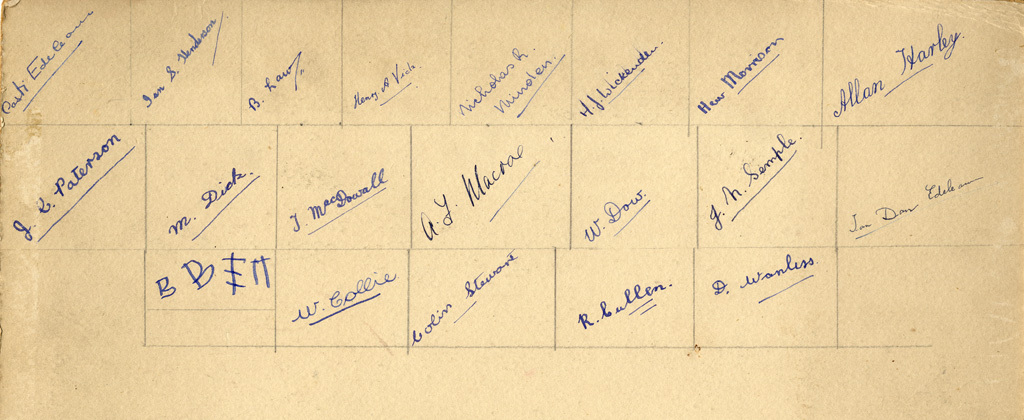 Ian S. Henderson
B. Law
Henry A Vick
Nicholas R.
Minden.
H J Wickenden.
Hew Morrison
Allan Harley.
J. K. Paterson
M. Dick.
T MacDowall
A. J. Macrae
W. Dow.
J. N. Semple.
Ian Dan Edelean
B B
W. Collie
Colin Stewart
R. Cullen.
D. Wanless.